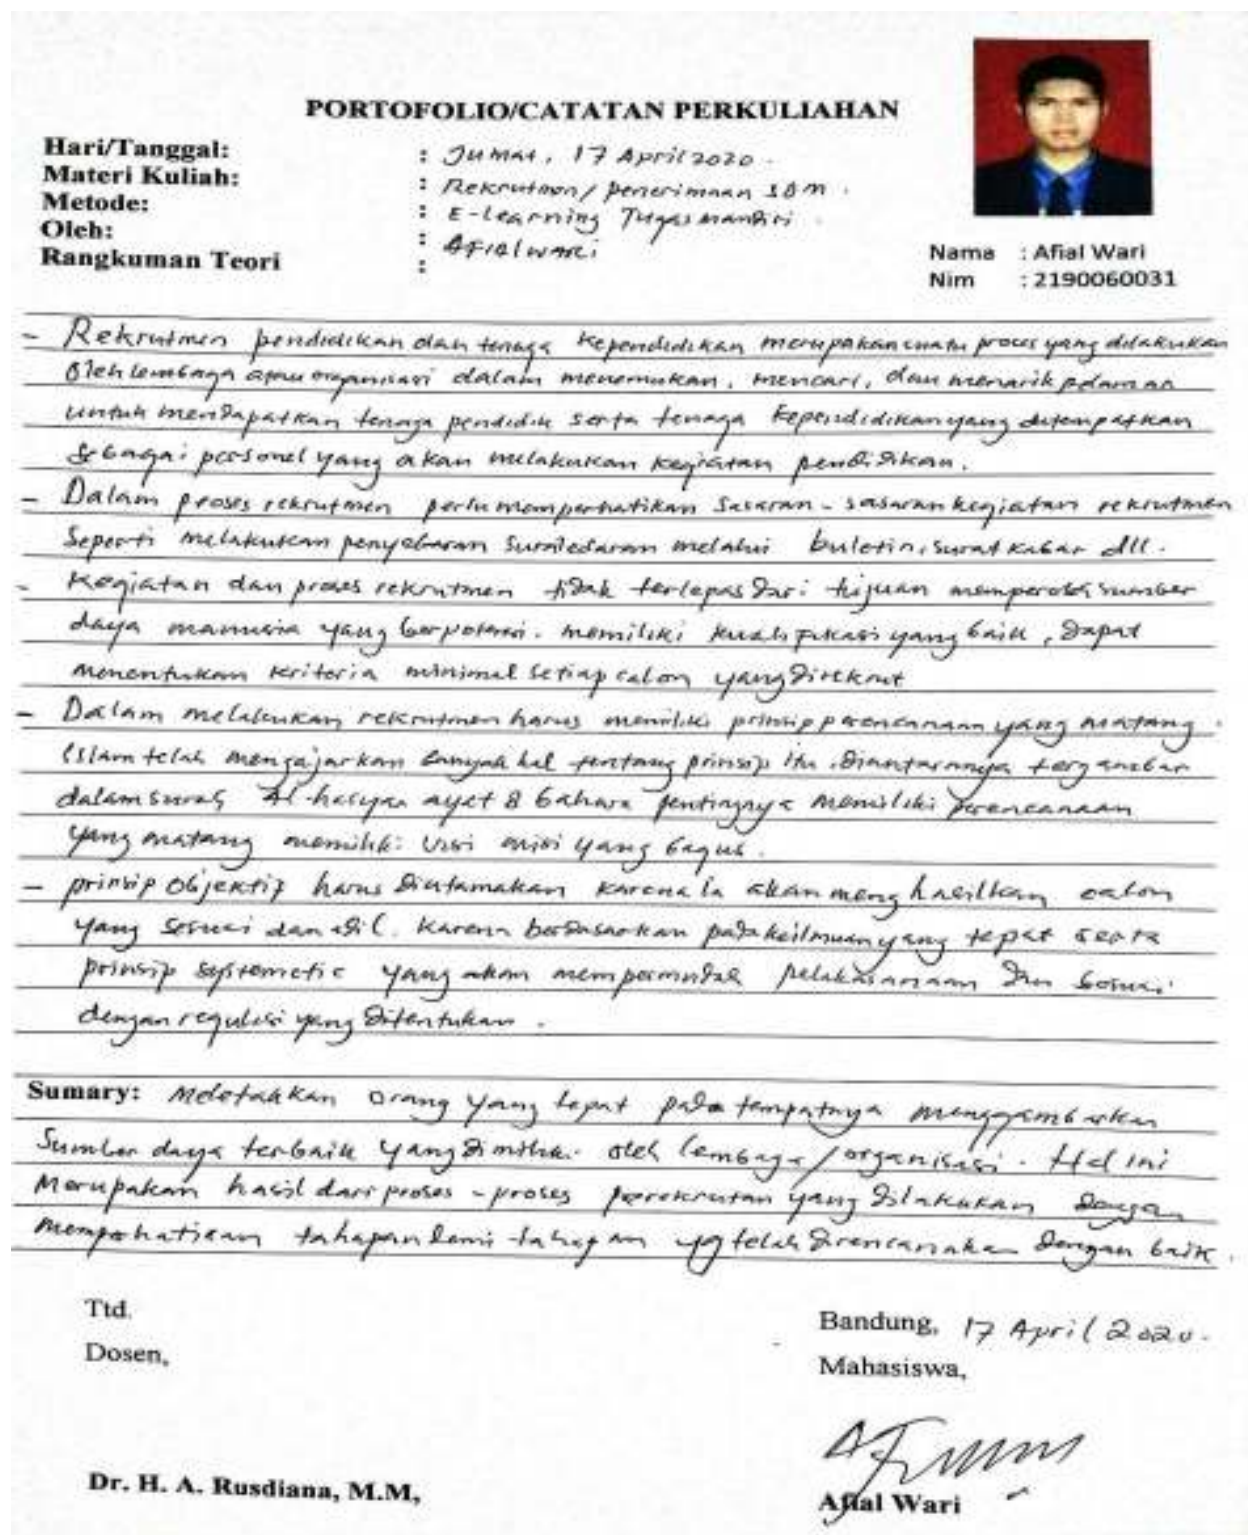 PORTOFOLIO/CATATAN PERKULIAHAN
Hari/Tanggal: : Jumat, 17 April 2020.
Materi Kuliah: : Rekrutmen/penerimaan SDM.
Metode: : E-learning Tugas mandiri.
Oleh: : Afial wari
Rangkuman Teori :
Nama : Afial Wari
Nim : 2190060031
- Rekrutmen pendidikan dan tenaga kependidikan merupakan suatu proses yang dilakukan
oleh lembaga atau organisasi dalam menemukan, mencari, dan menarik pelamar
untuk mendapatkan tenaga pendidik serta tenaga kependidikan yang ditempatkan
sebagai personel yang akan melakukan kegiatan pendidikan.
- Dalam proses rekrutmen perlu memperhatikan Sasaran-sasaran kegiatan rekrutmen
Seperti melakukan penyebaran melalui buletin, surat kabar dll.
- Kegiatan dan proses rekrutmen tidak terlepas dari tujuan memperoleh sumber
daya manusia yang berpotensi. memiliki kualifikasi yang baik, dapat
menentukan kriteria minimal setiap calon yang direkrut
- Dalam melakukan rekrutmen harus memiliki prinsip perencanaan yang matang.
Islam telah mengajarkan banyak hal tentang prinsip itu. diantaranya tergambar
dalam surat Al-hasyar ayat 8 bahwa pentingnya memiliki perencanaan
yang matang memiliki visi misi yang bagus.
- prinsip Objektif harus diutamakan karena ia akan menghasilkan calon
yang sesuai dan adil. karena berdasarkan pada keilmuan yang tepat serta
prinsip sistematic yang akan mempermudah pelaksanaan dan sesuai
dengan regulasi yang ditentukan.
Sumary: Meletakkan orang yang tepat pada tempatnya menggambarkan
Sumber daya terbaik yang dimiliki oleh lembaga/organisasi. Hal ini
Merupakan hasil dari proses-proses perekrutan yang dilakukan dengan
memperhatikan tahapan demi tahapan yg telah direncanakan dengan baik.
Ttd.
Dosen,
Bandung, 17 April 2020.
Mahasiswa,
Dr. H. A. Rusdiana, M.M,
Afial Wari